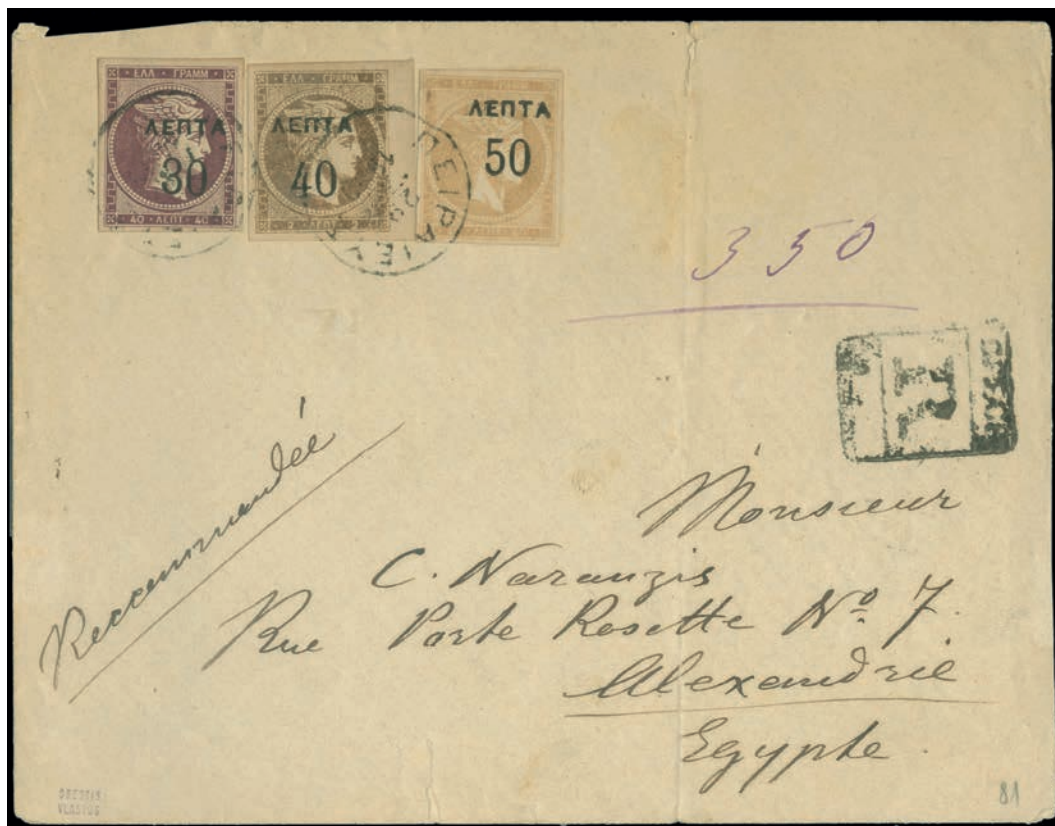 ΕΛΛ · ΓΡΑΜΜ
ΛΕΠΤΑ
30
40 · ΛΕΠΤ · 40
ΕΛΛ · ΓΡΑΜΜ
ΛΕΠΤΑ
40
2 · ΛΕΠΤΑ · 2
ΛΕΠΤΑ
50
350
R
Reccommandée
Monsieur
C. Naranzis
Rue Porte Rosette Nº 7.
Alexandrie
Egypte.
VLASTOS
81